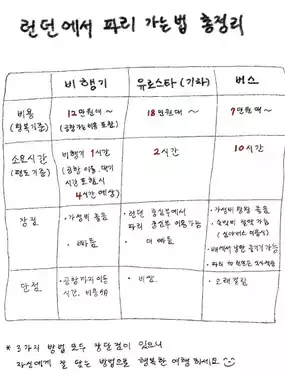 런던에서 파리 가는법 총정리
비행기
유로스타 (기차)
버스
비용
(왕복기준)
12만원대~
(공항가는비용 포함)
18만원대~
7만원대~
소요시간
(편도기준)
비행기 1시간
(공항 이동, 대기
시간 포함시
4시간 예상)
2시간
10시간
장점
· 가성비 좋음
· 빠름
· 런던 중심부에서
파리 중심부 이동가능
· 더 빠름
· 가성비 짱짱 좋음
· 숙박비 절약 가능
(심야버스 이용시)
단점
· 공항까지 이동
시간, 비용
· 비쌈.
· 오래걸림
* 3가지 방법 모두 장단점이 있으니
자신에게 잘 맞는 방법으로 행복한 여행 하세요